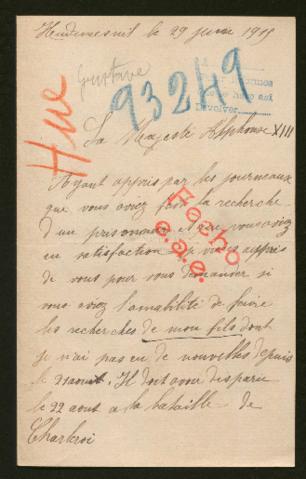 Hudimesnil le 29 juin 1915
Gustave
Hue
93249
Devolver
Sa Majeste Alphonse XIII
Ayant appris par les journeaux
que vous aviez fait la recherche
d'un prisonnier et que vous aviez
eu satisfaction je viens aupres
de vous pour vous demander si
vous aviez l'amabilité de faire
les recherches de mon fils dont
je n'ai pas eu de nouvelles depuis
le 21 aout. Il doit avoir disparu
le 22 aout a la bataille de
Charleroi
Hecho